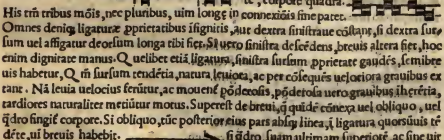 corpore quadra.
His tm̃ tribus mõis, nec pluribus, uim longę in connexiõis fine patet.
Omnes deniq; ligaturæ ꝓprietatibus isignitis, aut dextra sinistraue cõstant, si dextra sur-
sum uel affigatur deorsum longa tibi fiet. Si uero sinistra descẽdens, breuis altera fiet, hoc
enim dignitate manus. Quelibet etiã ligatura, sinistra sursum ꝓprietate gaudẽs, semibre
uis habetur, Q m̃ sursum tendẽtia, natura leuiora, ac per cõsequẽs uelociora grauibus ex
tant. Nã leuia uelocius ferũtur, ac mouent põderosis, põderosa uero grauibus ihærẽtia,
tardiores naturaliter metiũtur motus. Superest de breui, q̃ quidẽ cõnexa uel obliquo, uel
q̃dro fingit̃ corpore. Si obliquo, tũc posterior eius pars absq; linea, i ligatura quorsũuis tẽ
dẽte, ui breuis habebit. si q̃dro suam ultimam superiorẽ ac sine